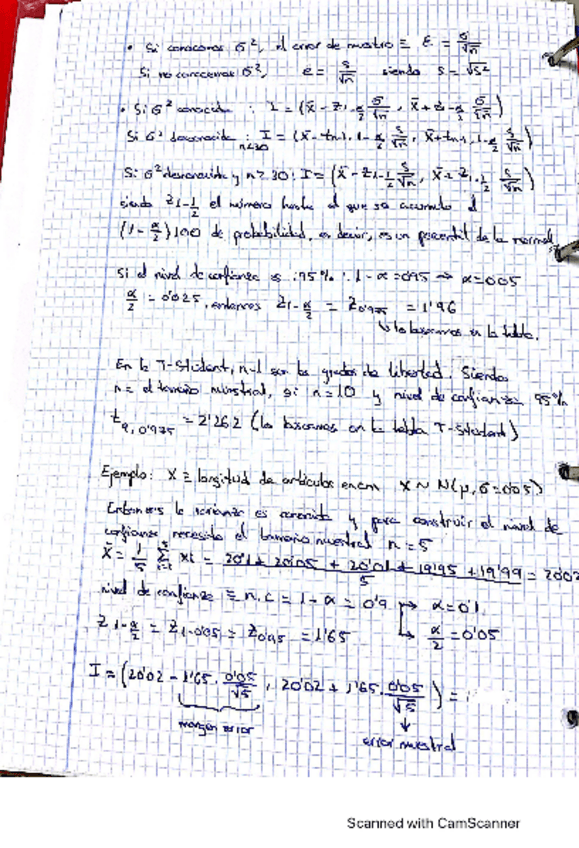 • Si conocemos σ², el error de muestreo ≡ ε = σ/√n
Si no conocemos σ², ε = s/√n siendo s = √s²
• Si σ² conocida : I = (x̄ - z1-α/2 σ/√n , x̄ + z1-α/2 σ/√n)
Si σ² desconocida : I = (x̄ - tn-1, 1-α/2 s/√n , x̄ + tn-1, 1-α/2 s/√n)
n<30
Si σ² desconocida y n > 30 : I = (x̄ - z1-α/2 s/√n , x̄ + z1-α/2 s/√n)
siendo el número hasta el que se acumula el
(1 - α/2)100 de probabilidad, es decir, es un percentil de la normal.
Si el nivel de confianza es : 95% : 1 - α = 0'95 → α = 0'05
α/2 = 0'025, entonces z1-α/2 = z0'975 = 1'96
↳ lo buscamos en la tabla.
En la T-Student, n-1 son los grados de libertad. Siendo
n = el tamaño muestral, si n = 10 y nivel de confianza 95%
t9, 0'975 = 2'262 (lo buscamos en la tabla T-Student)
Ejemplo: X ≡ longitud de artículos en cm X ~ N(μ, σ = 0'05)
Entonces la varianza es conocida y para construir el nivel de
confianza necesito el tamaño muestral n = 5
x̄ = 1/5 Σ xi = 20'1 + 20'05 + 20'01 + 19'95 + 19'99 / 5 = 20'02
nivel de confianza ≡ n.c = 1 - α = 0'9 → α = 0'1
z1-α/2 = z1-0'05 = z0'95 = 1'65 ↳ α/2 = 0'05
I = (20'02 - 1'65 · 0'05/√5 , 20'02 + 1'65 · 0'05/√5) =
margen error
error muestral
Scanned with CamScanner